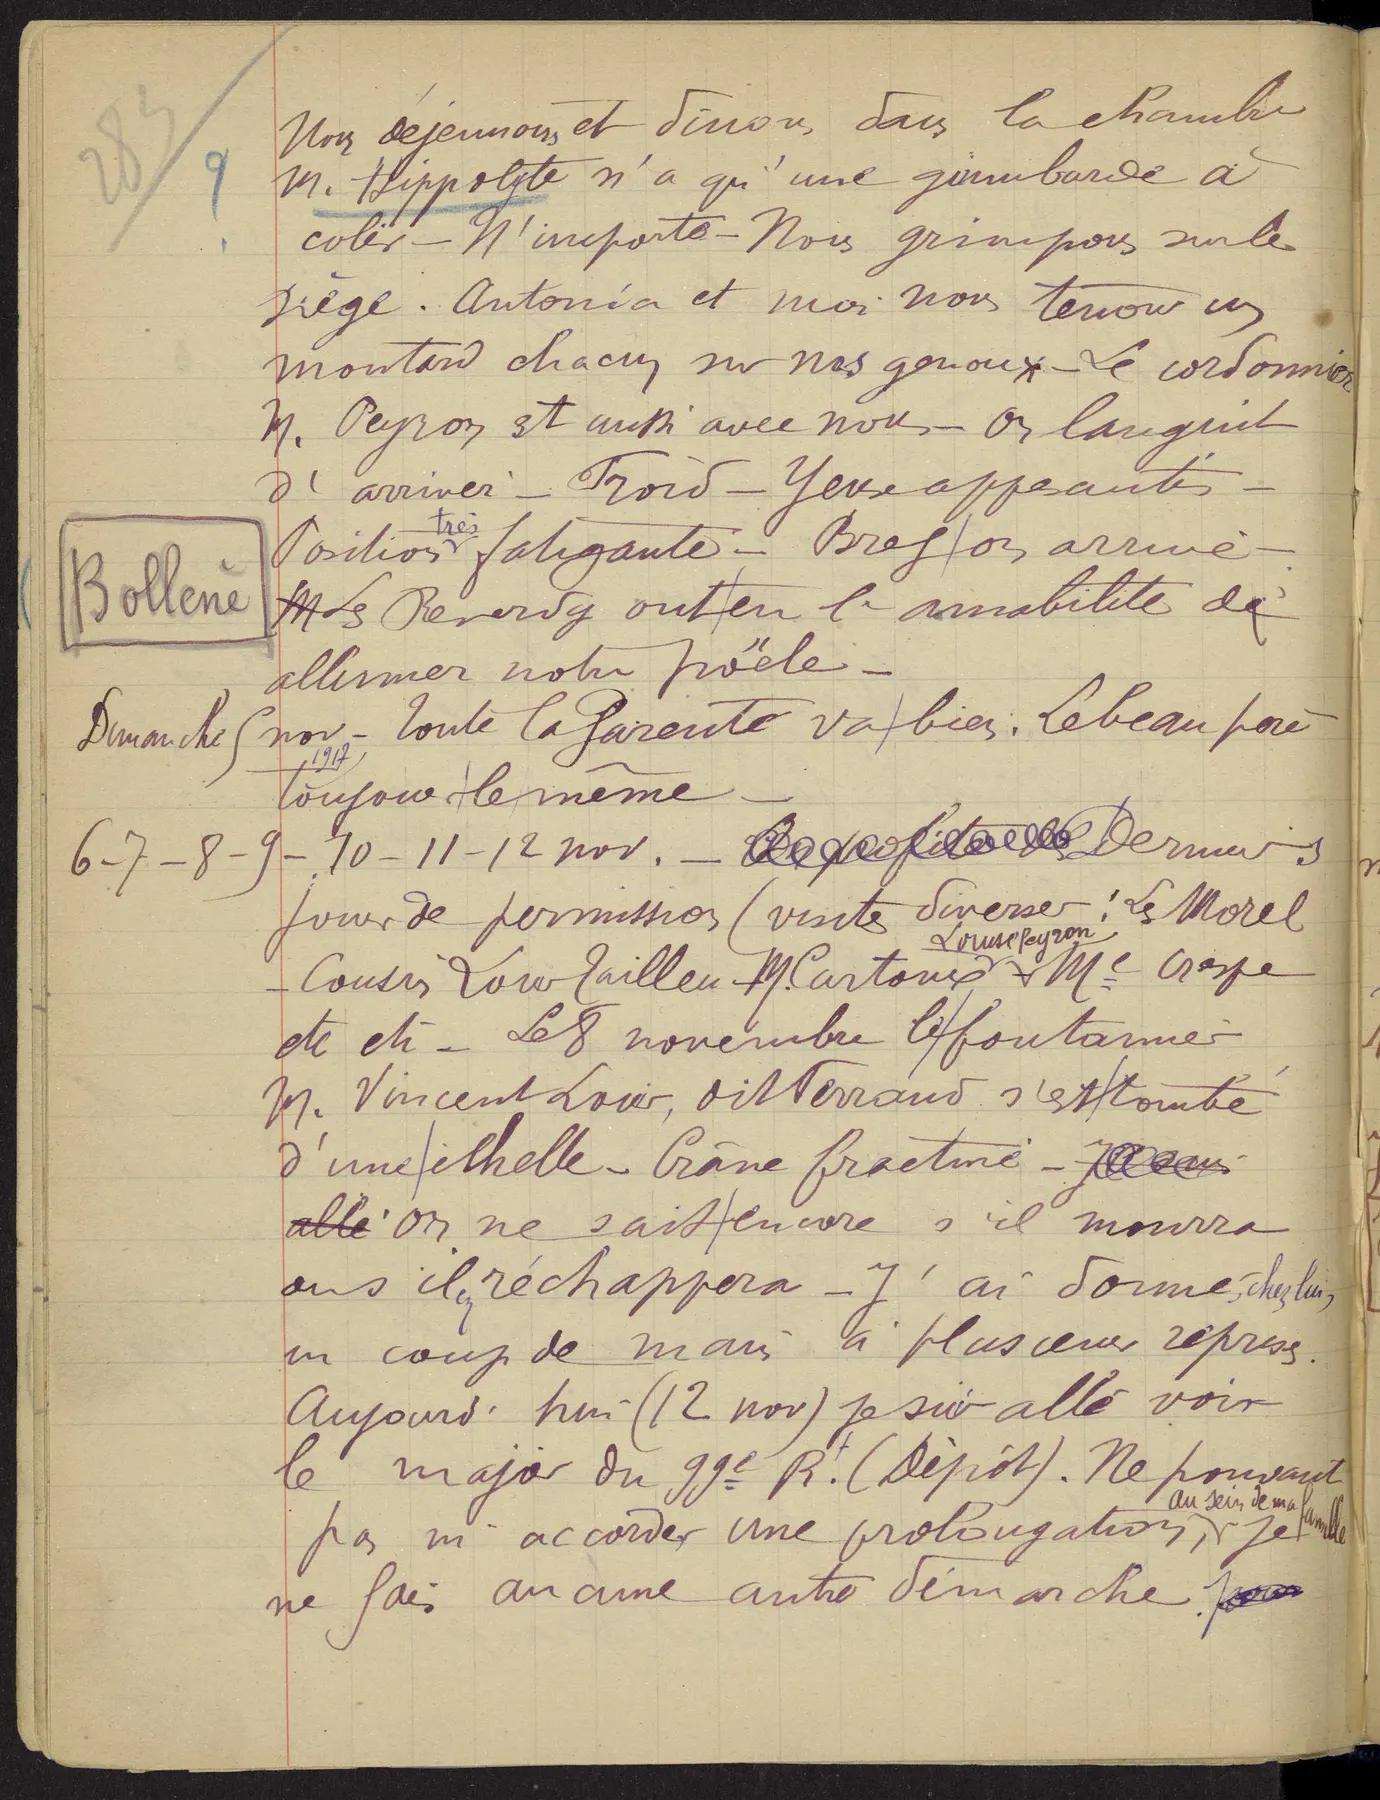 283
Nous déjeunons et dinons dans la chambre
? M. Hippolyte n'a qu'une guimbarde à
colis – N'importe – Nous grimpons sur le
siège. Antonia et moi nous tenons un
moutard chacun sur nos genoux – Le cordonnier
M. Peyron est aussi avec nous – On languit
d'arriver – Froid – Yeux appesantis –
Position très fatigante – Bref on arrive –
Bollène
Les Reverdy ont eu l'amabilité de
allumer notre poële –
Dimanche 5 nov – 1917 Toute la Parenté va bien. Le beau père
toujours le même –
6 – 7 – 8 – 9 – 10 – 11 – 12 nov. – Derniers
jours de permission (visites diverses : Les Morel
– Cousin Louis Tailleu M. Cartoux Louise Peyron – Me Crespe
etc etc – Le 8 novembre le fontannier
M. Vincent Louis, dit Ferrand s'est tombé
d'une echelle – Crâne fracturé –
allé On ne sait encore s'il mourra
ou s'il en réchappera – J'ai donné, chez lui,
un coup de main à plusieurs reprises.
Aujourd'hui (12 nov) je suis allé voir
le major du 99e Rt. (Dépôt). Ne pouvant
pas m'accorder une prolongation, au sein de ma famille je
ne fais aucune autre démarche. pour